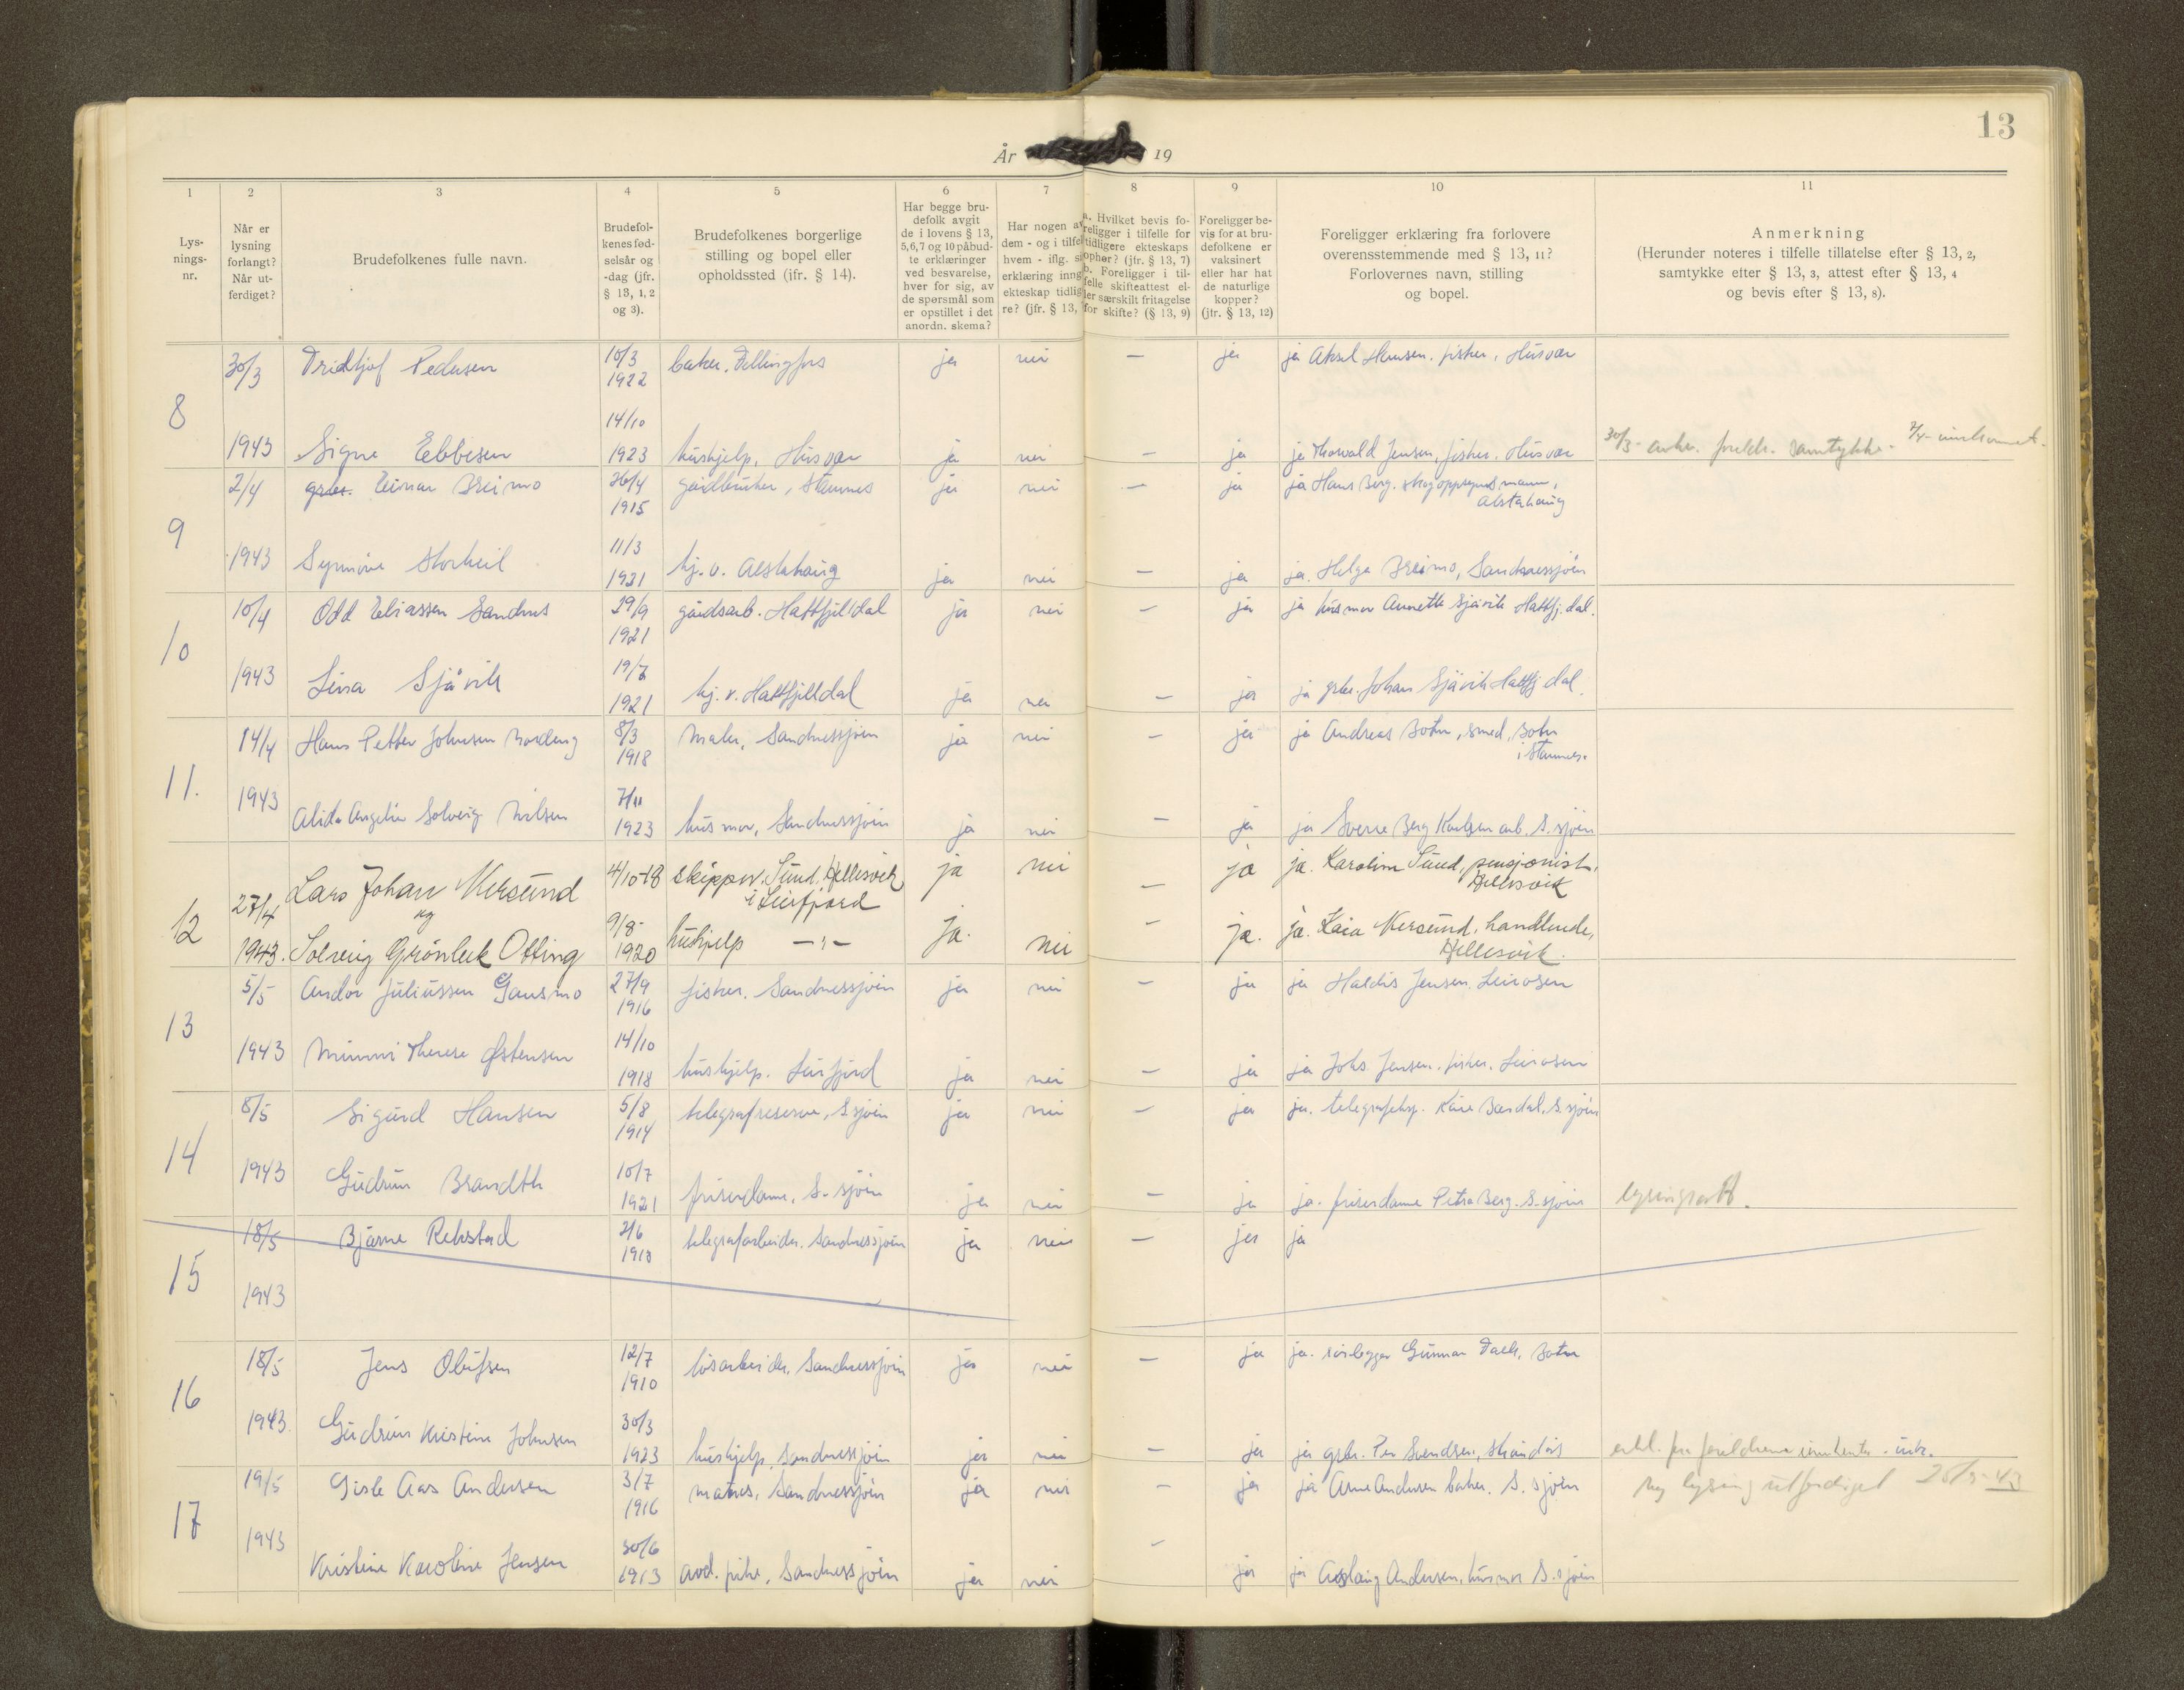 13
År 19
1 2 3 4 5 6 7 8 9 10 11
Lys-
nings-
nr.
Når er
lysning
forlangt?
Når ut-
ferdiget?
Brudefolkenes fulle navn.
Brudefol-
kenes fød-
selsår og
-dag (jfr.
§ 13, 1, 2
og 3).
Brudefolkenes borgerlige
stilling og bopel eller
opholdssted (ifr. § 14).
Har begge bru-
defolk avgit
de i lovens § 13,
5,6,7 og 10 påbud-
te erklæringer
ved besvarelse,
hver for sig, av
de spørsmål som
er opstillet i det
anordn. skema?
Har nogen av
dem - og i tilfel
hvem - iflg. si
erklæring inng
ekteskap tidlig
re? (jfr. § 13,
a. Hvilket bevis fo-
religger i tilfelle for
tidligere ekteskaps
ophør? (jfr. § 13, 7)
b. Foreligger i til-
felle skifteattest el-
ler særskilt fritagelse
for skifte? (§ 13, 9)
Foreligger be-
vis for at bru-
defolkene er
vaksinert
eller har hat
de naturlige
kopper?
(jfr. § 13, 12)
Foreligger erklæring fra forlovere
overensstemmende med § 13, 11?
Forlovernes navn, stilling
og bopel.
Anmerkning
(Herunder noteres i tilfelle tillatelse efter § 13, 2,
samtykke efter § 13, 3, attest efter § 13, 4
og bevis efter § 13, 8).
8
30/3 Fridtjof Pedersen 10/3 1922 baker. ja nei — ja ja Aksel Hansen. fisker, Husvær
1943 Signe Ebbesen 14/10 1923 hushjelp, Husvær ja nei — ja ja Thorvald Jensen, fisker. Husvær 30/3 samtykke.
9
2/4 grbr. Einar Breimo 26/4 1915 gårdbruker, Stamnes ja nei — ja ja Hans Berg. skogoppsynsmann,
Alstahaug
1943 Synnöve Storheil 11/3 1921 hj. v. Alstahaug ja nei — ja ja. Helga Breimo, Sandnessjöen
10
10/4 Odd Eliassen Sandnes 29/9 1921 gårdsarb. Hattfjelldal ja nei — ja ja husmor Annette Sjåvik Hattfj.dal.
1943 Lina Sjåvik 19/7 1921 hj. v. Hattfjelldal ja nei — ja ja grbr. Johan Sjåvik Hattfj dal.
11.
14/4 Hans Petter Johnsen Nordeng 8/3 1918 maler, Sandnessjöen ja nei — ja ja Andreas Botn, smed, Botn
i Stamnes.
1943 Alida Angelin Solveig Nilsen 7/11 1923 husmor, Sandnessjöen ja nei — ja ja Sverre Berg Karlsen arb. S.sjöen
12
27/4 Lars Johan Mersund 4/10-18 skipper. Sund, Hellesvik ja nei — ja ja. Karoline Sund, pensjonist,
i Leirfjord Hellesvik
og
1943. Solveig Grönbeck Otting 9/8- 1920 hushjelp —"— ja. nei — ja. ja. Kaia Mersund, handlende,
Hellesvik.
13
5/5 Andor Juliussen Gausmo 27/9 1916 fisker. Sandnessjöen ja nei — ja ja Haldis Jensen. Leirosen
1943 Mimmi Therese Østensen 14/10 1918 hushjelp. Leirfjord ja nei — ja ja Johs. Jensen. fisker. Leirosen
14
8/5 Sigurd Hansen 5/8 1914 telegrafreserve, S.sjöen ja nei — ja ja. Kåre S.sjöen
1943 Gudrun Brandth 10/7 1921 friserdame, S.sjöen ja nei — ja ja. friserdame Petra Berg. S.sjöen
15
18/5 Bjarne Rekstad 2/6 1918 telegrafarbeider. Sandnessjöen ja nei — ja ja
1943
16
18/5 Jens Olufsen 12/7 1910 lösarbeider, Sandnessjöen ja nei — ja ja. rörlegger Gunnar Falk, Botn
1943. Gudrun Kristine Johnsen 30/3 1923 hushjelp, Sandnessjöen ja nei — ja ja grbr. Per Svendsen,
17
19/5 Gisle Aas Andersen 3/7 1916 matros, Sandnessjöen ja nei — ja ja Arne Andersen baker. S.sjöen ny lysing utferdiget
1943 Kristine Karoline Jensen 30/6 1913 avd. pike, Sandnessjöen ja nei — ja ja Aslaug Andersen, husmor S.sjöen